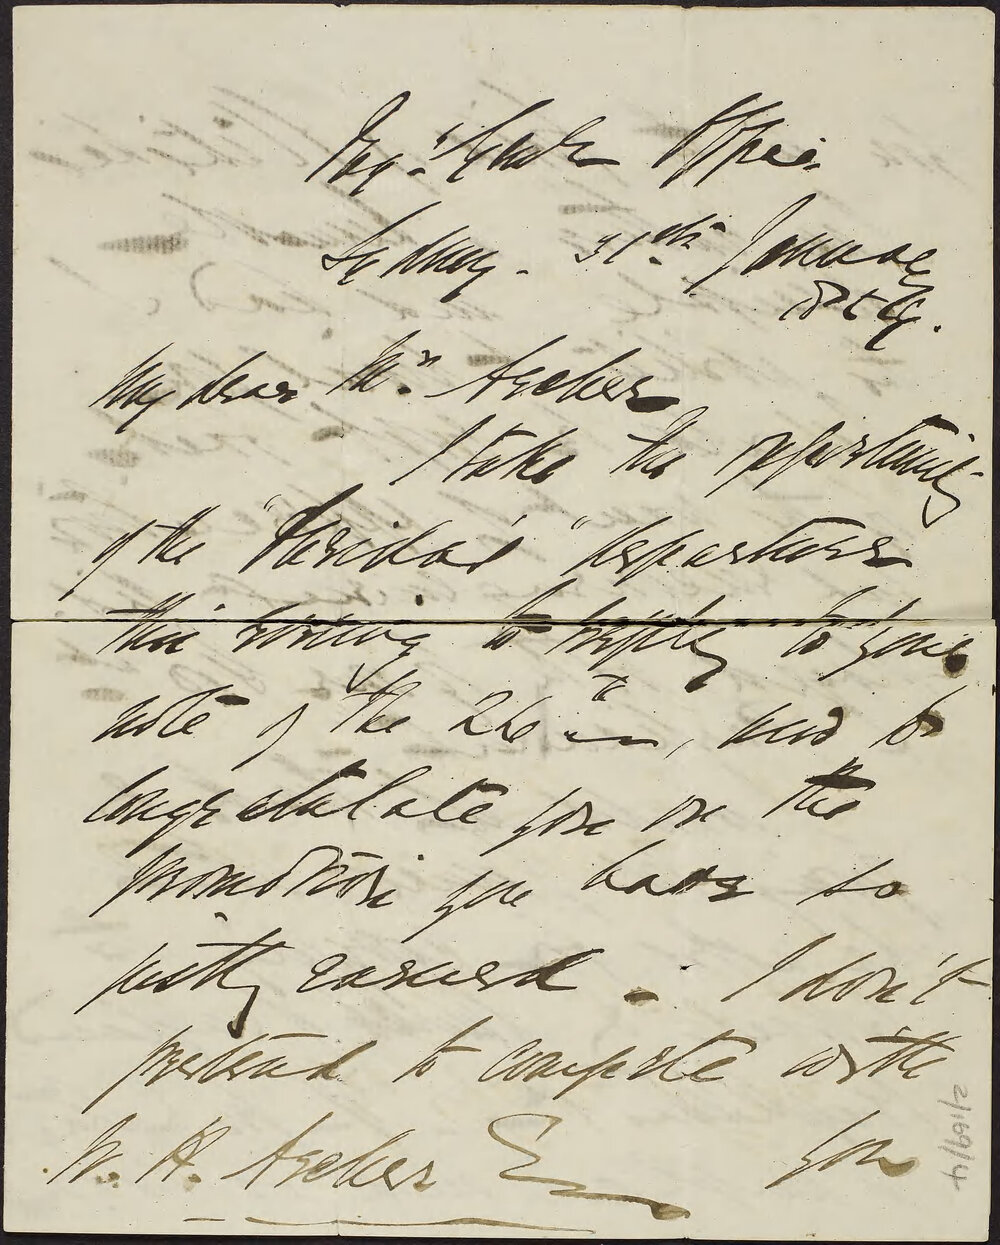 Reg.r Gen.l's Office
Sydney. 31st January
1859.
My dear Mr. Archer
I take the opportunity
of the "        " departure
this evening to reply to your
note of the 26th, and to
congratulate you on the
promotion you have so
justly earned. I don't
pretend to compete with
you
W. H. Archer Esq
2/169/4